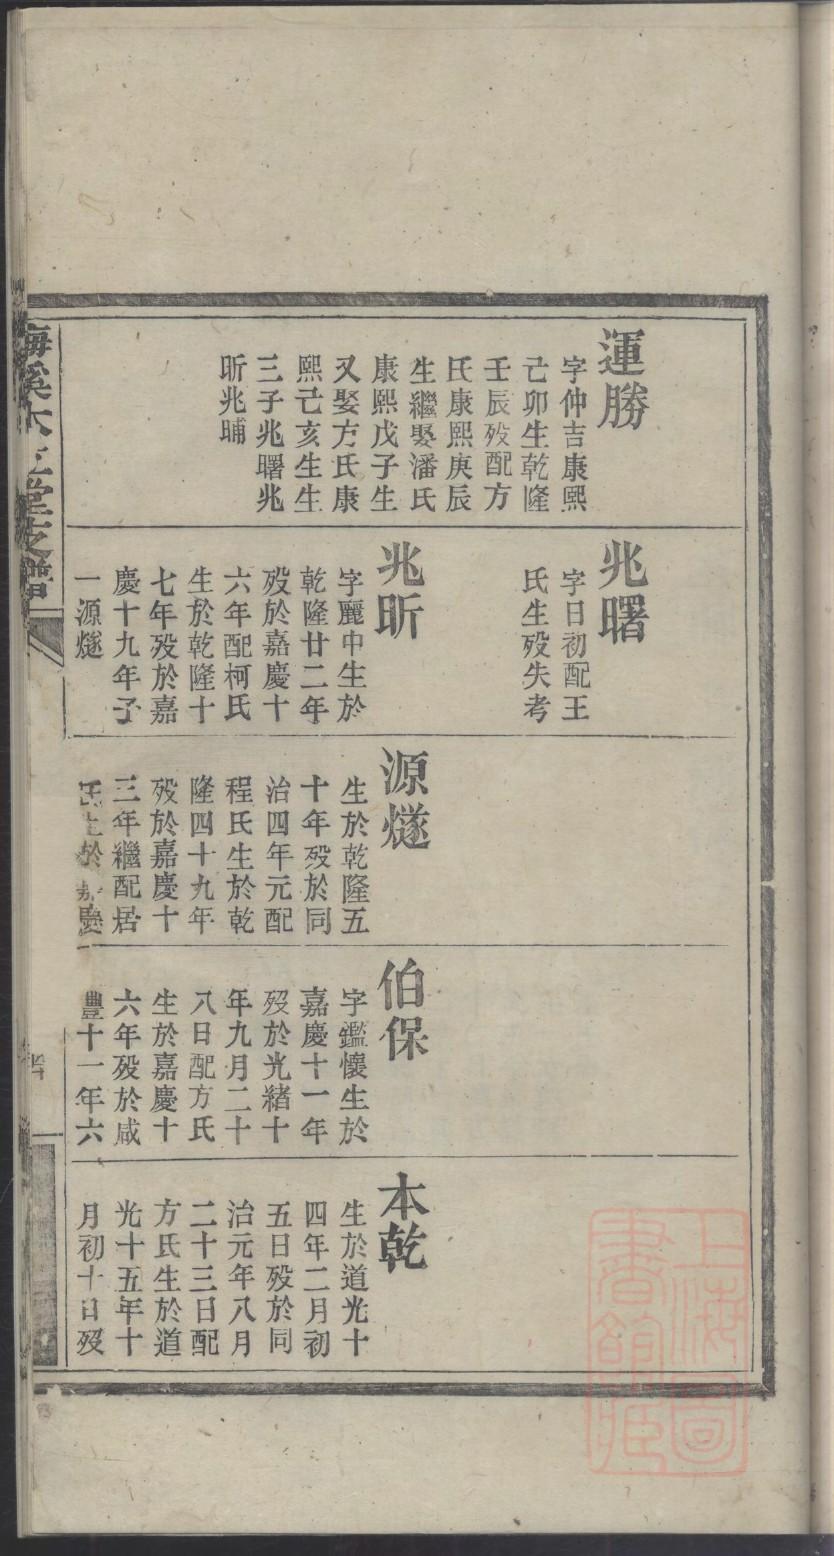 運勝
字仲吉康熙
己卯生乾隆
壬辰歿配方
氏康熙庚辰
生繼娶潘氏
康熙戊子生
又娶方氏康
熙己亥生生
三子兆曙兆
昕兆晡
兆曙
字日初配王
氏生歿失考
兆昕
字麗中生於
乾隆廿二年
歿於嘉慶十
六年配柯氏
生於乾隆十
七年歿於嘉
慶十九年子
一源燧
源燧
生於乾隆五
十年歿於同
治四年元配
程氏生於乾
隆四十九年
歿於嘉慶十
三年繼配居
氏生於嘉慶
伯保
字鑑懷生於
嘉慶十一年
歿於光緒十
年九月二十
八日配方氏
生於嘉慶十
六年歿於咸
豐十一年六
本乾
生於道光十
四年二月初
五日歿於同
治元年八月
二十三日配
方氏生於道
光十五年十
月初十日歿
堂支譜
上海圖
書館藏